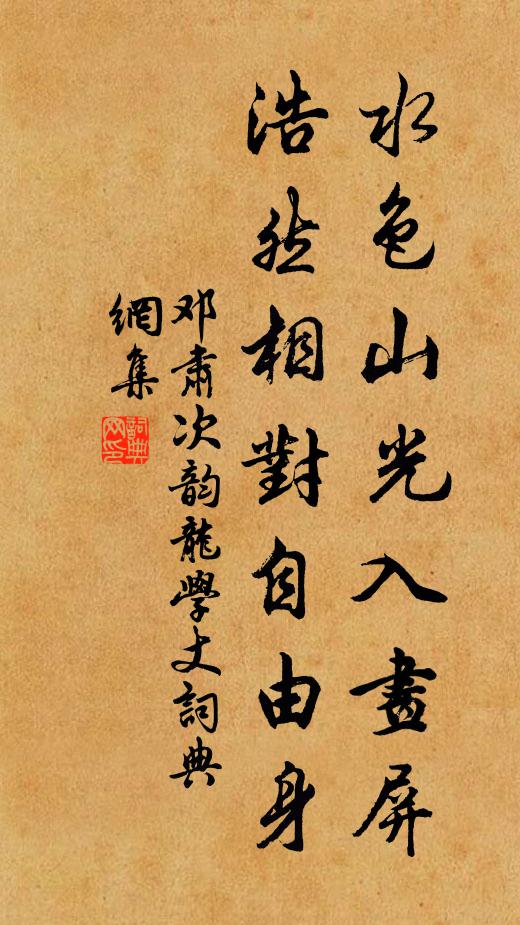 水色山光入畫屏
浩然相對自由身
邓肃次韵龍學丈詞典
網集
詞典網印